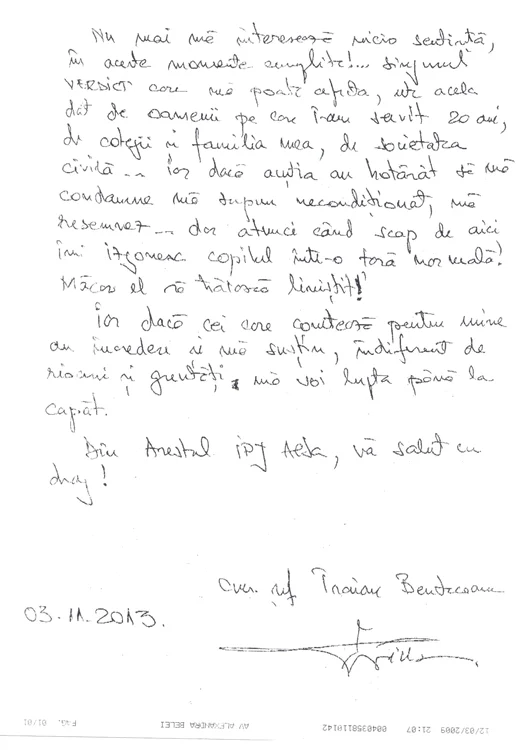 Nu mai mă interesează nicio sentință,
în aceste momente cumplite!... Singurul
VERDICT care mă poate afecta, este acela
dat de oamenii pe care i-am servit 20 ani,
de colegii și familia mea, de societatea
civilă... Iar dacă aceștia au hotărât să mă
condamne mă supun necondiționat, mă
resemnez... dar atunci când scap de aici
îmi izgonesc copilul într-o țară normală!
Măcar el să trăiască liniștit!
Iar dacă cei care contează pentru mine
au încredere și mă susțin, indiferent de
riscuri și greutăți, mă voi lupta până la
capăt.
Din Arestul IPJ Alba, vă salut cu
drag!
Traian Berbeceanu
03.11.2013.
12/03/2009 21:07 0040358110142 AV ALEXANDRA BELEI PAG. 01/01